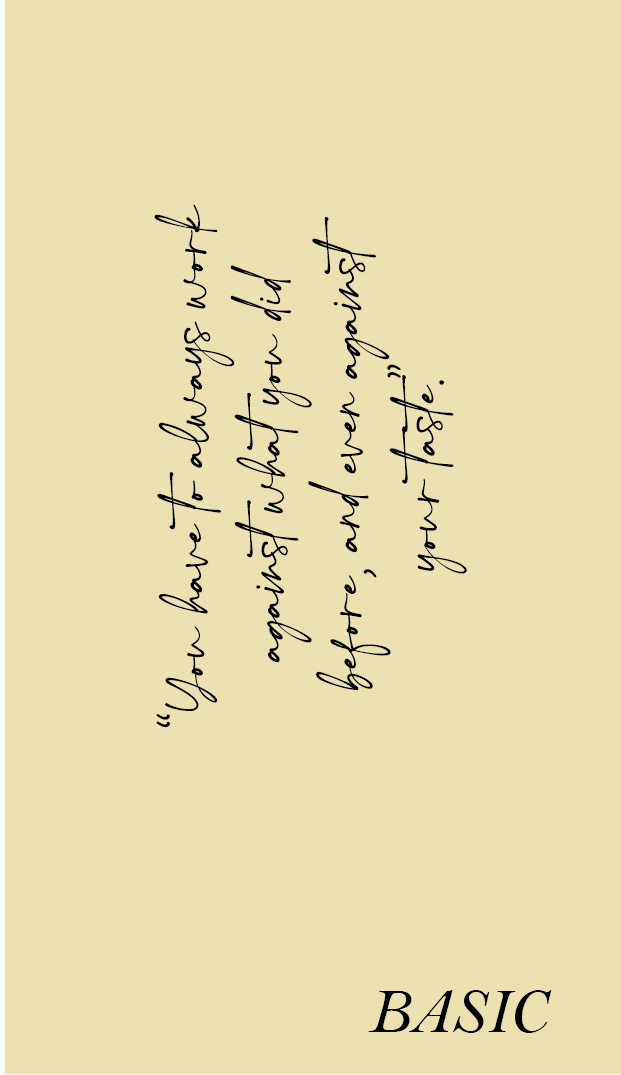 “You have to always work
against what you did
before, and even against
your taste.”
BASIC